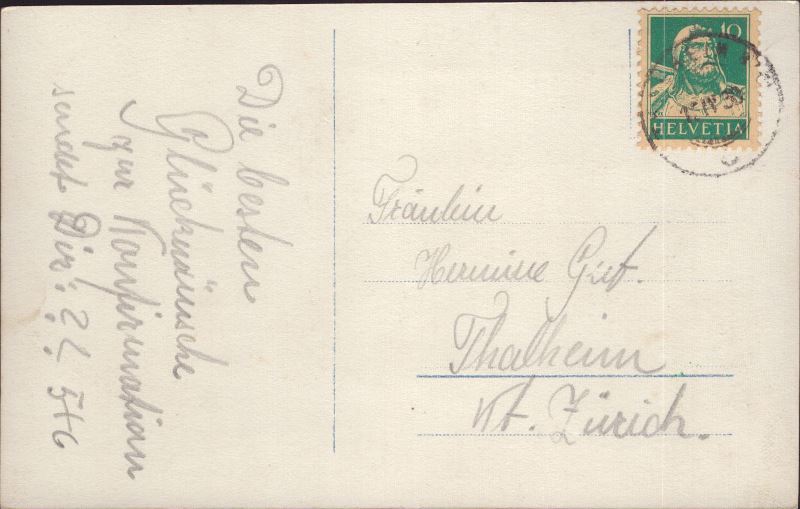 Die besten
Glückwünsche
zur Konfirmation
sendet Dir:
10
HELVETIA
Fräulein
Hermine
Thalheim
Kt. Zürich.